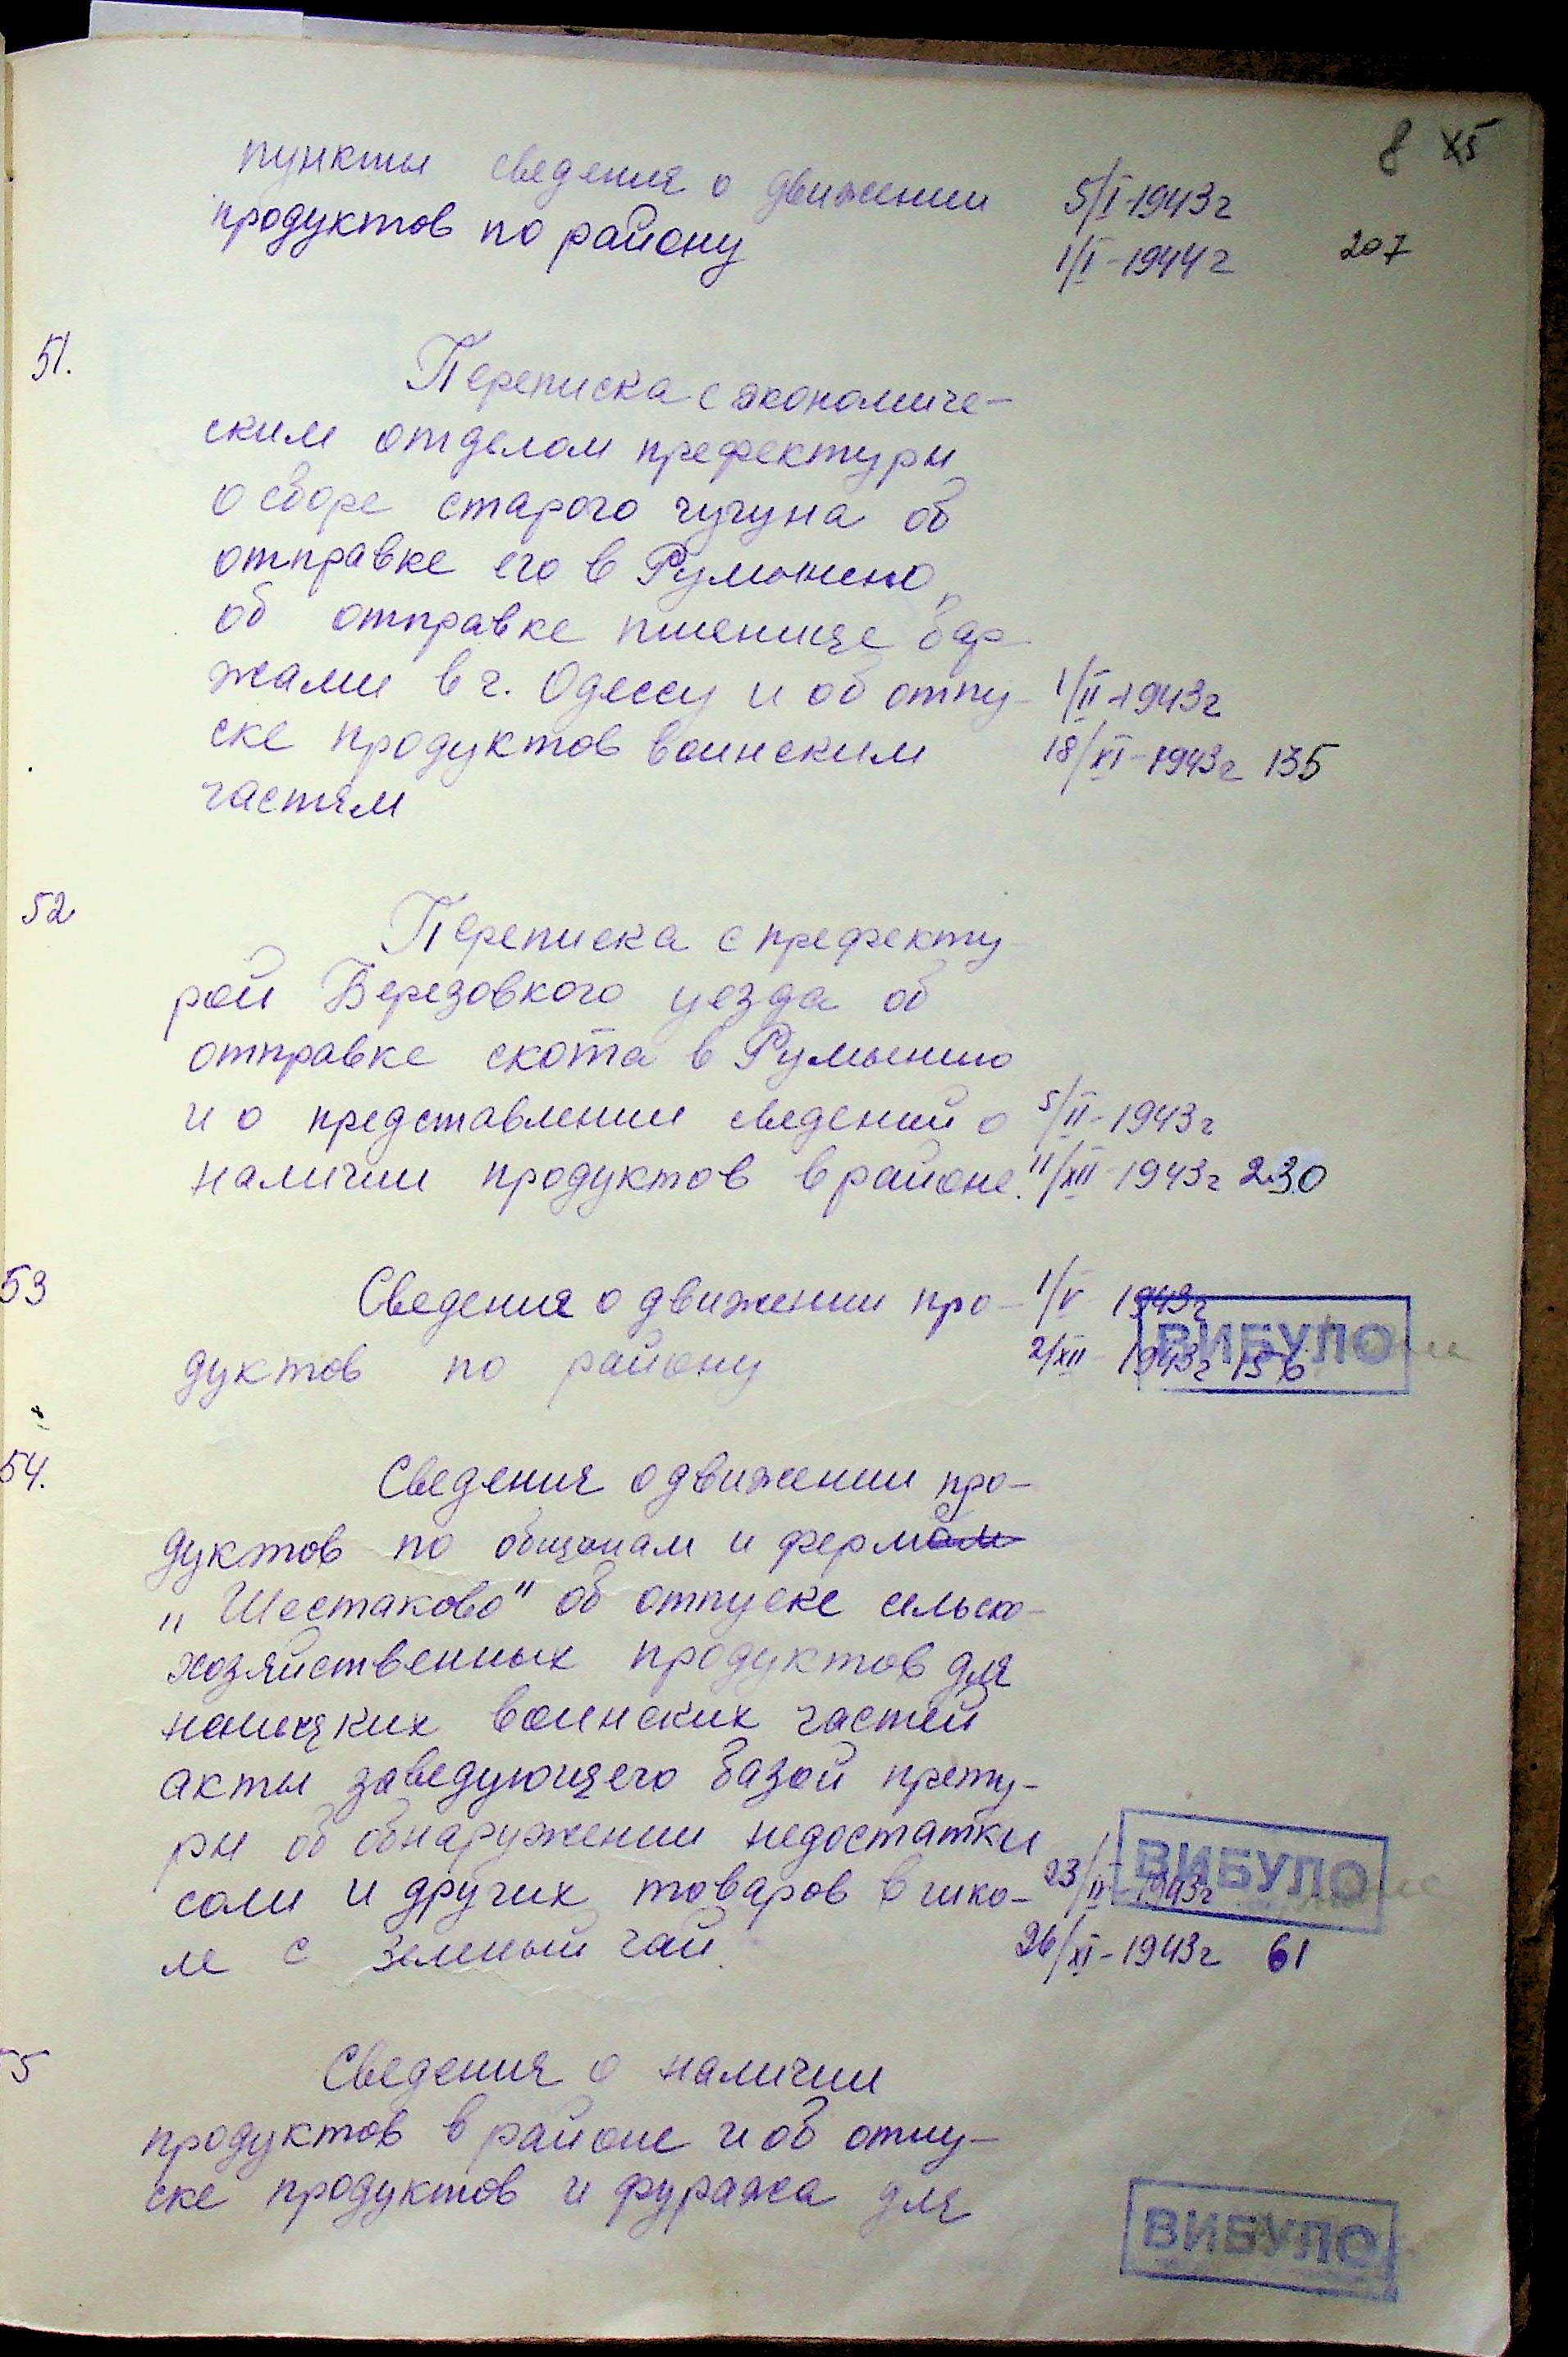 8 X5
пункты сведения о движении 5/I-1943г
продуктов по району 1/I-1944г 207
51. Переписка с экономиче-
ским отделом префектуры
о сборе старого чугуна об
отправке его в Румынию,
об отправке пшенице бар-
жами в г. Одессу и об отпу- 1/II-1943г
ске продуктов воинским 18/XI-1943г 135
частям
52 Переписка с префекту
рой Березовкого уезда об
отправке скота в Румынию
и о представлении сведений о 5/II-1943г
наличии продуктов в районе. 11/XII-1943г 230
53 Сведения о движении про- 1/V 1943г
ВИБУЛО
дуктов по району 2/XII-1943г 156
54. Сведения о движении про-
дуктов по общинам и ферме
„Шестаково" об отпуске сельско-
хозяйственных продуктов для
немецких воинских частей
акты заведующего базой прету-
ры об обнаружении недостатки
ВИБУЛО
соли и других товаров в 23/II-1943г
с Зеленый гай. 26/XI-1943г 61
5 Сведения о наличии
продуктов в районе и об отпу-
ске продуктов и фуража для
ВИБУЛО